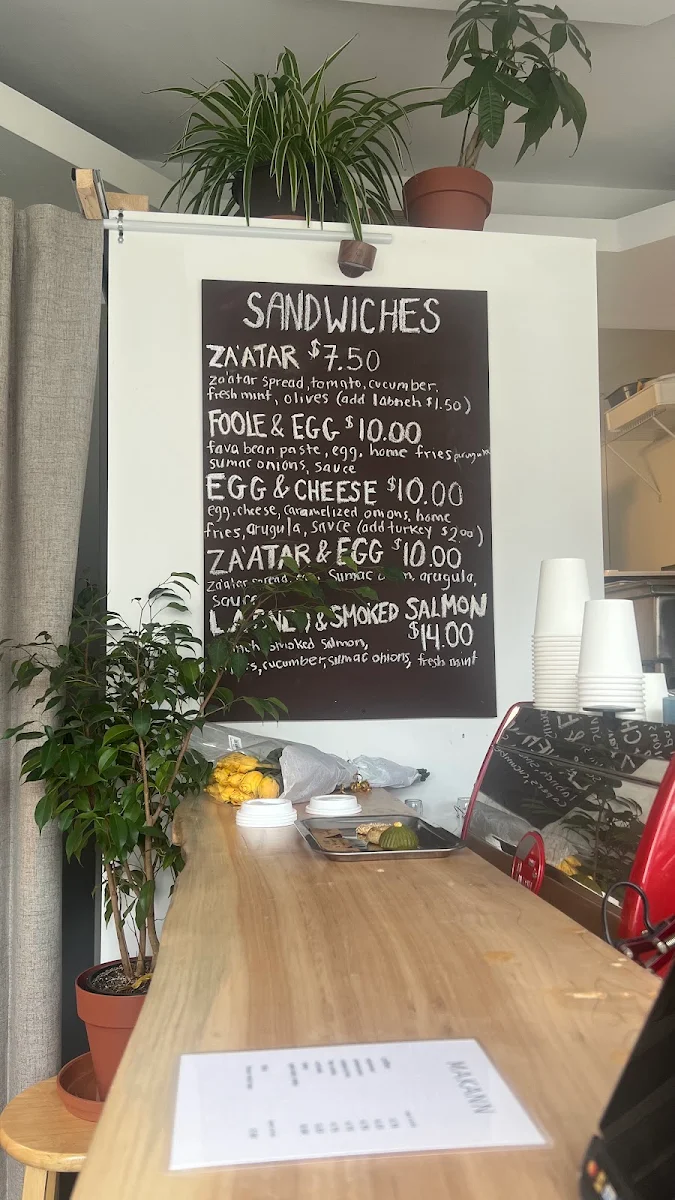 SANDWICHES
ZA'ATAR $7.50
za'atar spread, tomato, cucumber,
fresh mint, olives (add labneh $1.50)
FOOLE & EGG $10.00
fava bean paste, egg, home fries, arugula
sumac onions, sauce
EGG & CHEESE $10.00
egg, cheese, caramelized onions, home
fries, arugula, sauce (add turkey $2.00)
ZA'ATAR & EGG $10.00
za'atar spread, sumac arugula,
sauce
& SMOKED SALMON
$14.00
smoked salmon,
cucumber, sumac onions, fresh mint
MAKANN